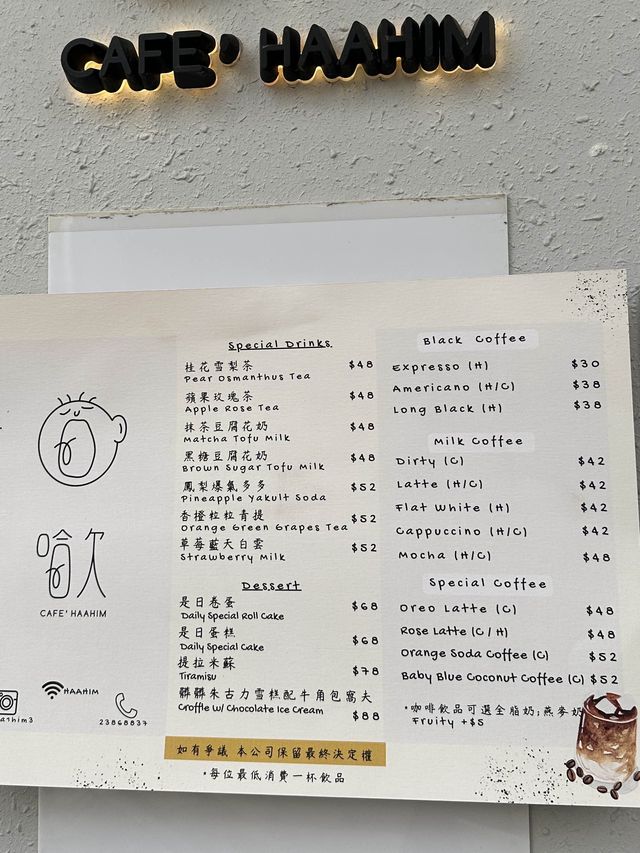 CAFE' HAAHIM
哈欠
CAFE' HAAHIM
HAAHIM
23868837
Special Drinks
桂花雪梨茶 $48
Pear Osmanthus Tea
蘋果玫瑰茶 $48
Apple Rose Tea
抹茶豆腐花奶 $48
Matcha Tofu Milk
黑糖豆腐花奶 $48
Brown Sugar Tofu Milk
鳳梨爆氣多多 $52
Pineapple Yakult Soda
香橙粒粒青提 $52
Orange Green Grapes Tea
草莓藍天白雲 $52
Strawberry Milk
Dessert
是日卷蛋 $68
Daily Special Roll Cake
是日蛋糕 $68
Daily Special Cake
提拉米蘇 $78
Tiramisu
髒髒朱古力雪糕配牛角包窩夫
Croffle w/ Chocolate Ice Cream $88
如有爭議 本公司保留最終決定權
*每位最低消費一杯飲品
Black Coffee
Expresso (H) $30
Americano (H/C) $38
Long Black (H) $38
Milk Coffee
Dirty (C) $42
Latte (H/C) $42
Flat White (H) $42
Cappuccino (H/C) $42
Mocha (H/C) $48
Special Coffee
Oreo Latte (C) $48
Rose Latte (C/H) $48
Orange Soda Coffee (C) $52
Baby Blue Coconut Coffee (C) $52
*咖啡飲品可選全脂奶;燕麥奶
Fruity +$5